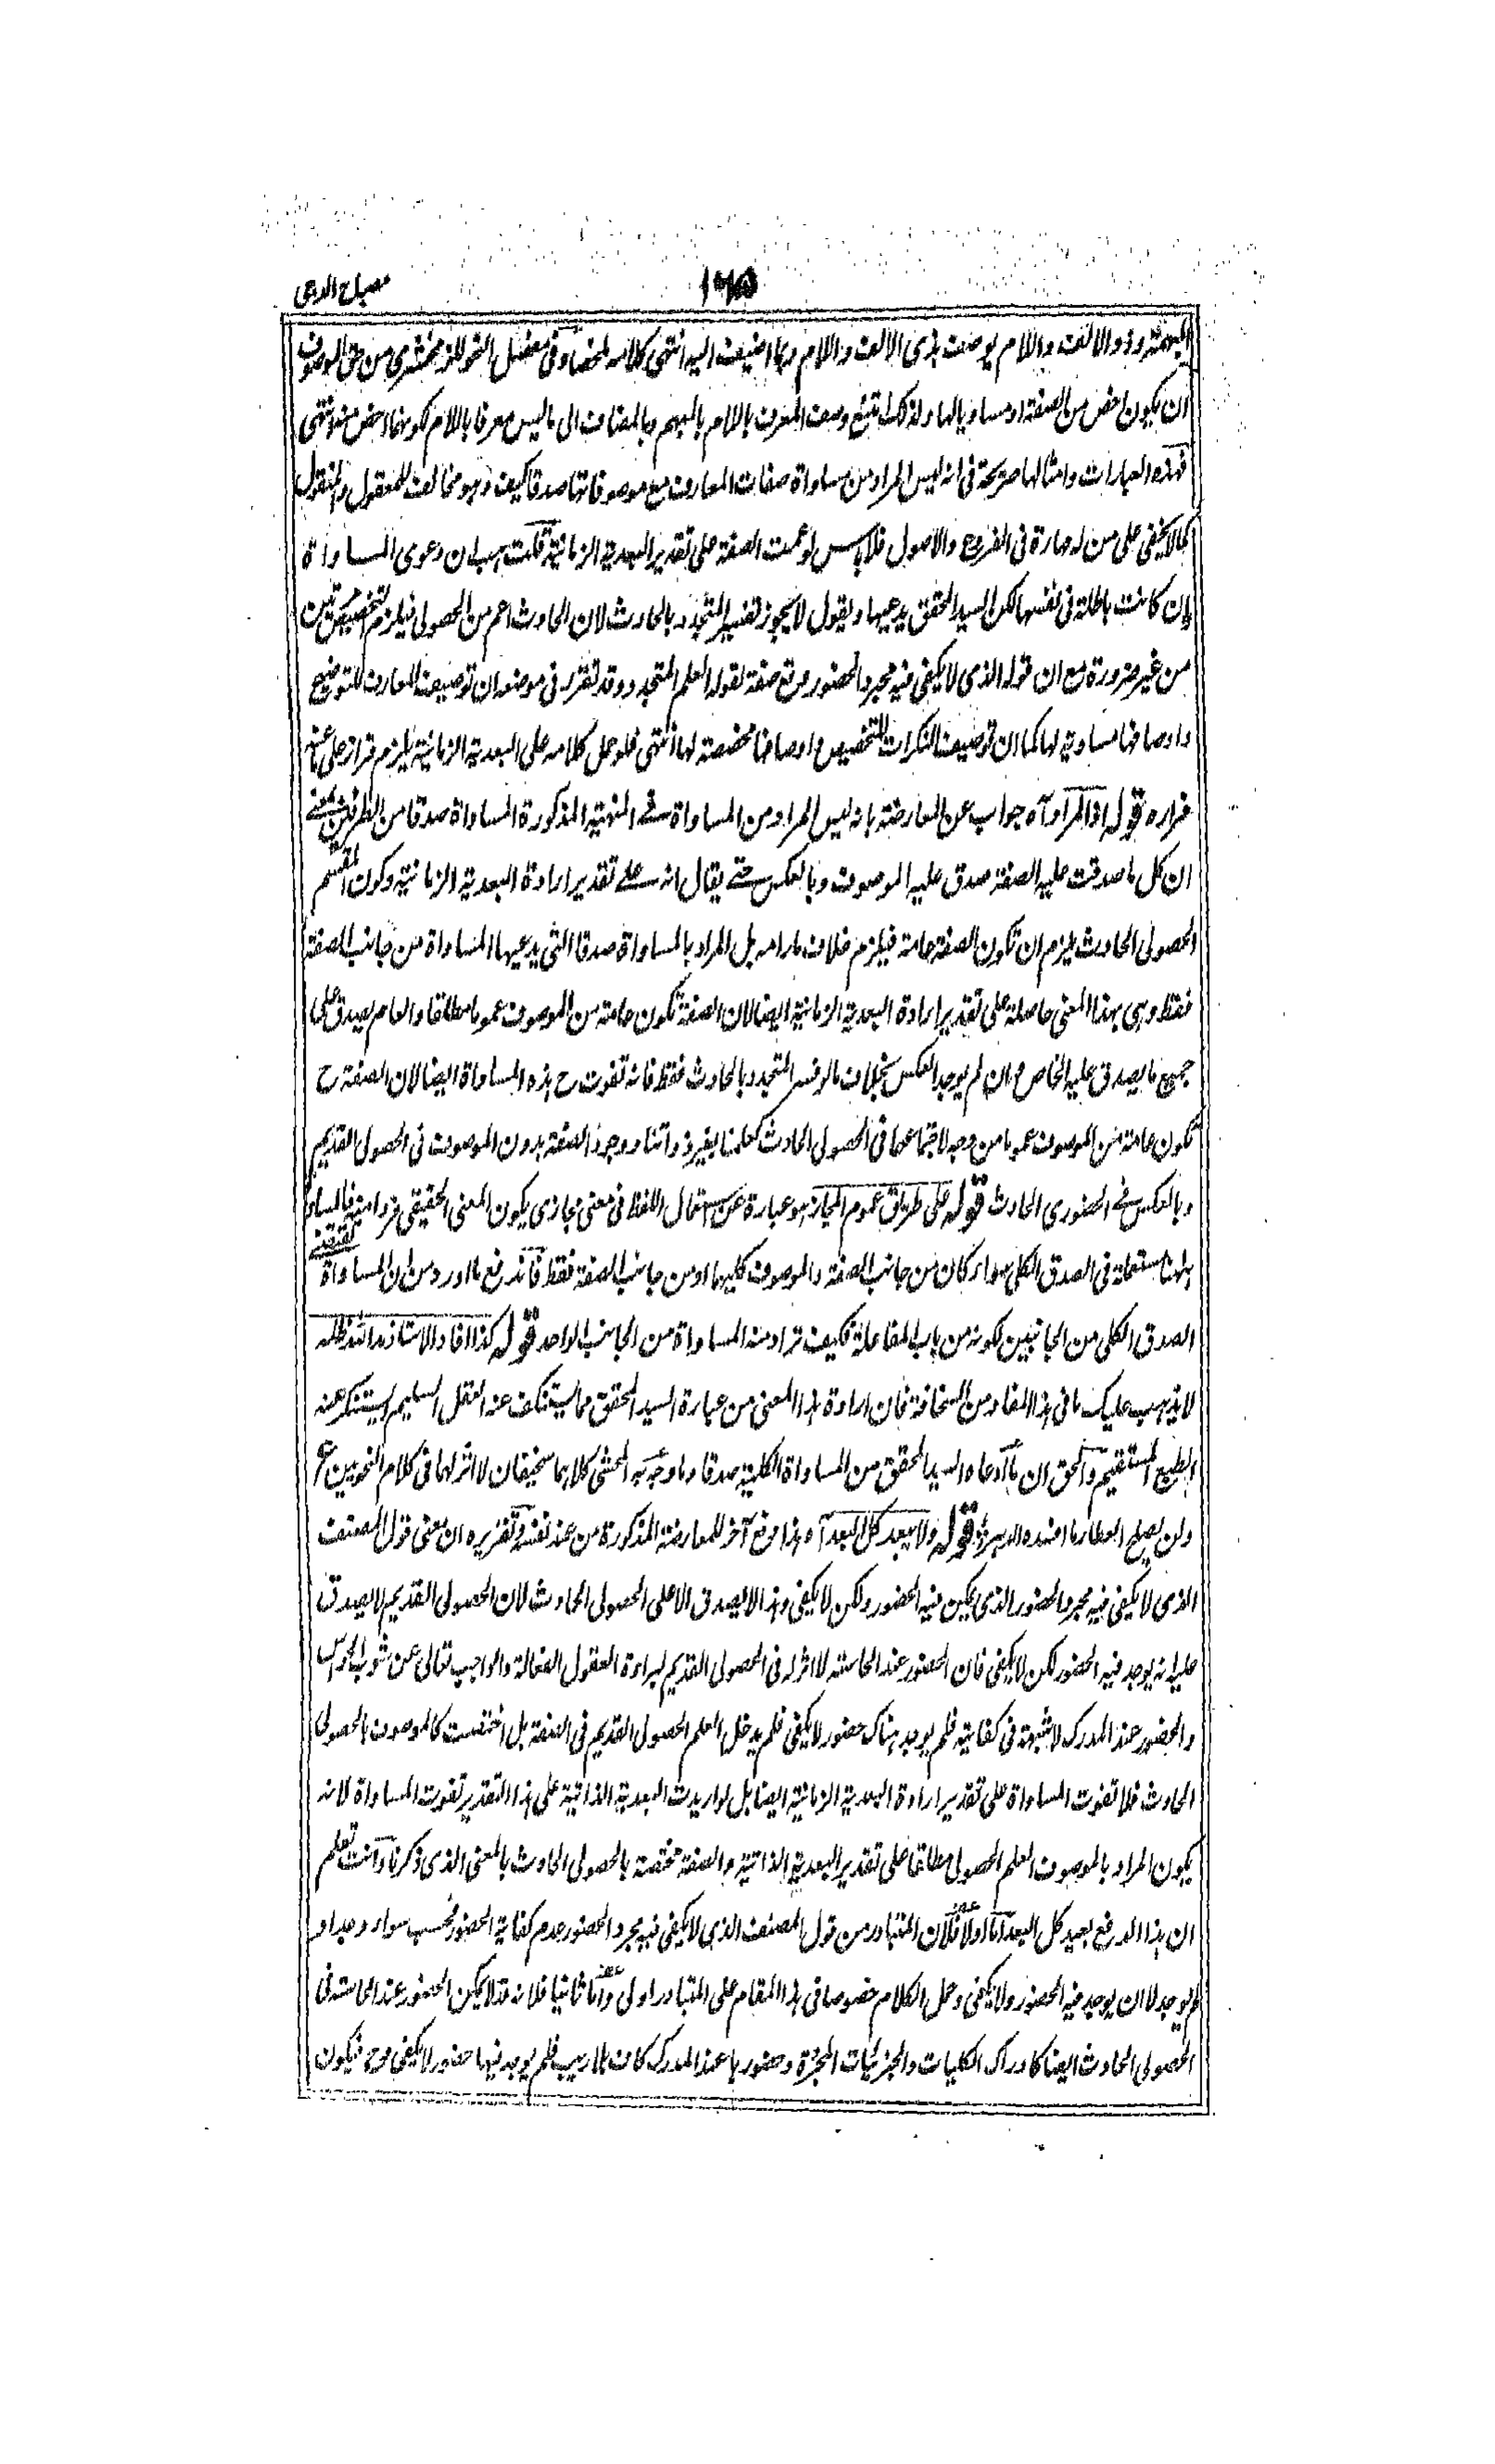 مصباح الدجى
١٦٥
المبهمة وذو الالف واللام يوصف بذى الالف واللام وبما اضيف اليه انتهى كلامه ملخصا وفى مفصل النحو للزمخشرى من حق الموصوف
ان يكون اخص من الصفة او مساويا لها ولذلك امتنع وصف المعرف باللام بالمبهم وبالمضاف الى ما ليس معرفا باللام لكونهما اخص منه انتهى
فهذه العبارات وامثالها صريحة فى انه ليس المراد من مساواة صفات المعارف مع موصوفاتها صدقا كيف وهو مخالف للمعقول والمنقول
كما لا يخفى على من له مهارة فى الفروع والاصول فلا باس لو عمت الصفة على تقدير البعدية الزمانية قلت هب ان دعوى المساواة
وان كانت باطلة فى نفسها لكن السيد المحقق يدعيها ويقول لا يجوز تفسير المتجدد بالحادث لان الحادث اعم من الحصولى فيلزم التخصيص مرتين
من غير ضرورة مع ان قوله الذى لا يكفى فيه مجرد الحضور وقع صفة لقوله العلم المتجدد وقد تقرر فى موضعه ان توصيف المعارف للتوضيح
واوصافها مساوية لها كما ان توصيف النكرات للتخصيص واوصافها مخصصة لها انتهى فلو حمل كلامه على البعدية الزمانية يلزم قراره على ما عنه
فراره قوله اذ المراد آه جواب عن المعارضة بانه ليس المراد من المساواة فى المنهية المذكورة المساواة صدقا من الطرفين بمعنى
ان كل ما صدقت عليه الصفة صدق عليه الموصوف وبالعكس حتى يقال انه على تقدير ارادة البعدية الزمانية وكون المقسم
الحصولى الحادث يلزم ان تكون الصفة عامة فيلزم خلاف ما رامه بل المراد بالمساواة صدقا التى يدعيها المساواة من جانب الصفة
فقط وهى بهذا المعنى حاصلة على تقدير ارادة البعدية الزمانية ايضا لان الصفة تكون عامة من الموصوف عموما مطلقا والعام يصدق على
جميع ما يصدق عليه الخاص وان لم يوجد العكس بخلاف ما لو فسر المتجدد بالحادث فقط فانه تفوت ح هذه المساواة ايضا لان الصفة ح
تكون عامة من الموصوف عموما من وجه لاجتماعهما فى الحصولى الحادث كعلمنا بغير ذواتنا ووجود الصفة بدون الموصوف فى الحصولى القديم
وبالعكس فى الحضورى الحادث قوله على طريق عموم المجاز هو عبارة عن استعمال اللفظ فى معنى مجازى يكون المعنى الحقيقى فردا منه فالمساواة
ههنا مستعملة فى الصدق الكلى سواء كان من جانب الصفة والموصوف كليهما او من جانب الصفة فقط فاندفع ما اورد من ان المساواة تقتضى
الصدق الكلى من الجانبين لكونه من باب المفاعلة فكيف تراد منه المساواة من الجانب الواحد قوله كذا افاد الاستاذ مد الله ظله
لا يذهب عليك ما فى هذا المفاد من السخافة فان ارادة هذا المعنى من عبارة السيد المحقق مما يستنكف عنه العقل السليم ويستنكر عنه
الطبع المستقيم والحق ان ما ادعاه السيد المحقق من المساواة الكلية صدقا وما وجهه به المحشى كلاهما سخيفان لا اثر لهما فى كلام النحويين ع
ولن يصلح العطار ما افسده الدهر ؛ قوله ولا يبعد كل البعد آه هذا دفع آخر للمعارضة المذكورة من عند نفسه وتقريره ان معنى قول المصنف
الذى لا يكفى فيه مجرد الحضور الذى يمكن فيه الحضور ولكن لا يكفى وهذا لا يصدق الا على الحصولى الحادث لان الحصولى القديم لا يصدق
عليه انه يوجد فيه الحضور لكن لا يكفى فان الحضور عند الحاسة لا اثر له فى الحصولى القديم لبراءة العقول الفعالة والواجب تعالى عن شوب الحواس
والحضور عند المدرك لا شبهة فى كفايته فلم يوجد هناك حضور لا يكفى فلم يدخل العلم الحصولى القديم فى الصفة بل اختصت كالموصوف بالحصولى
الحادث فلا تفوت المساواة على تقدير ارادة البعدية الزمانية ايضا بل لو اريدت البعدية الذاتية على هذا التقدير تفوت المساواة لانه
يكون المراد بالموصوف العلم الحصولى مطلقا على تقدير البعدية الذاتية والصفة مختصة بالحصولى الحادث بالمعنى الذى ذكرنا وانت تعلم
ان هذا الدفع بعيد كل البعد اما اولا فلان المتبادر من قول المصنف الذى لا يكفى فيه مجرد الحضور عدم كفاية الحضور فحسب سواء وجد او
لم يوجد لا ان يوجد فيه الحضور ولا يكفى وحمل الكلام خصوصا فى هذا المقام على المتبادر اولى واما ثانيا فلانه قد لا يمكن الحضور عند الحاسة فى
الحصولى الحادث ايضا كادراك الكليات والجزئيات المجردة وحضورها عند المدرك كاف بلا ريب فلم يوجد فيها حضور لا يكفى وح فيكون